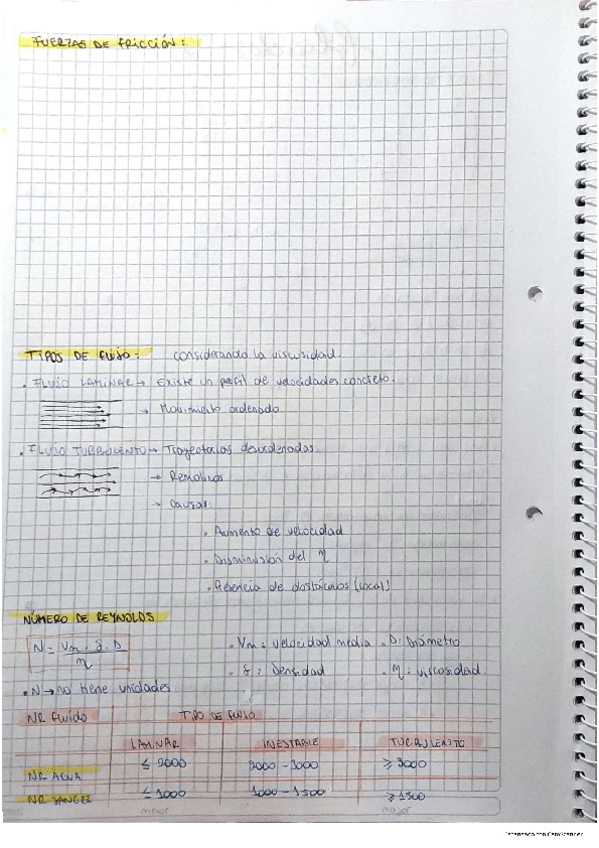 FUERZAS DE FRICCIÓN:
TIPOS DE FLUJO: considerando la viscosidad.
• FLUJO LAMINAR → EXISTE UN perfil de velocidades concreto.
→ Movimiento ordenado
• FLUJO TURBULENTO → Trayectorias desordenadas.
→ Remolinos
→ Causas:
• Aumento de velocidad
• Disminución del η
• Presencia de obstáculos (local)
NÚMERO DE REYNOLDS
N = Vm · δ · D / η
• Vm: velocidad media • D: Diámetro
• δ: Densidad • η: viscosidad.
• N → no tiene unidades
NR fluido TIPO DE FLUJO
LAMINAR INESTABLE TURBULENTO
NR AGUA ≤ 2000 2000 - 3000 ≥ 3000
NR SANGRE ≤ 1000 1000 - 1500 ≥ 1500
menor mayor